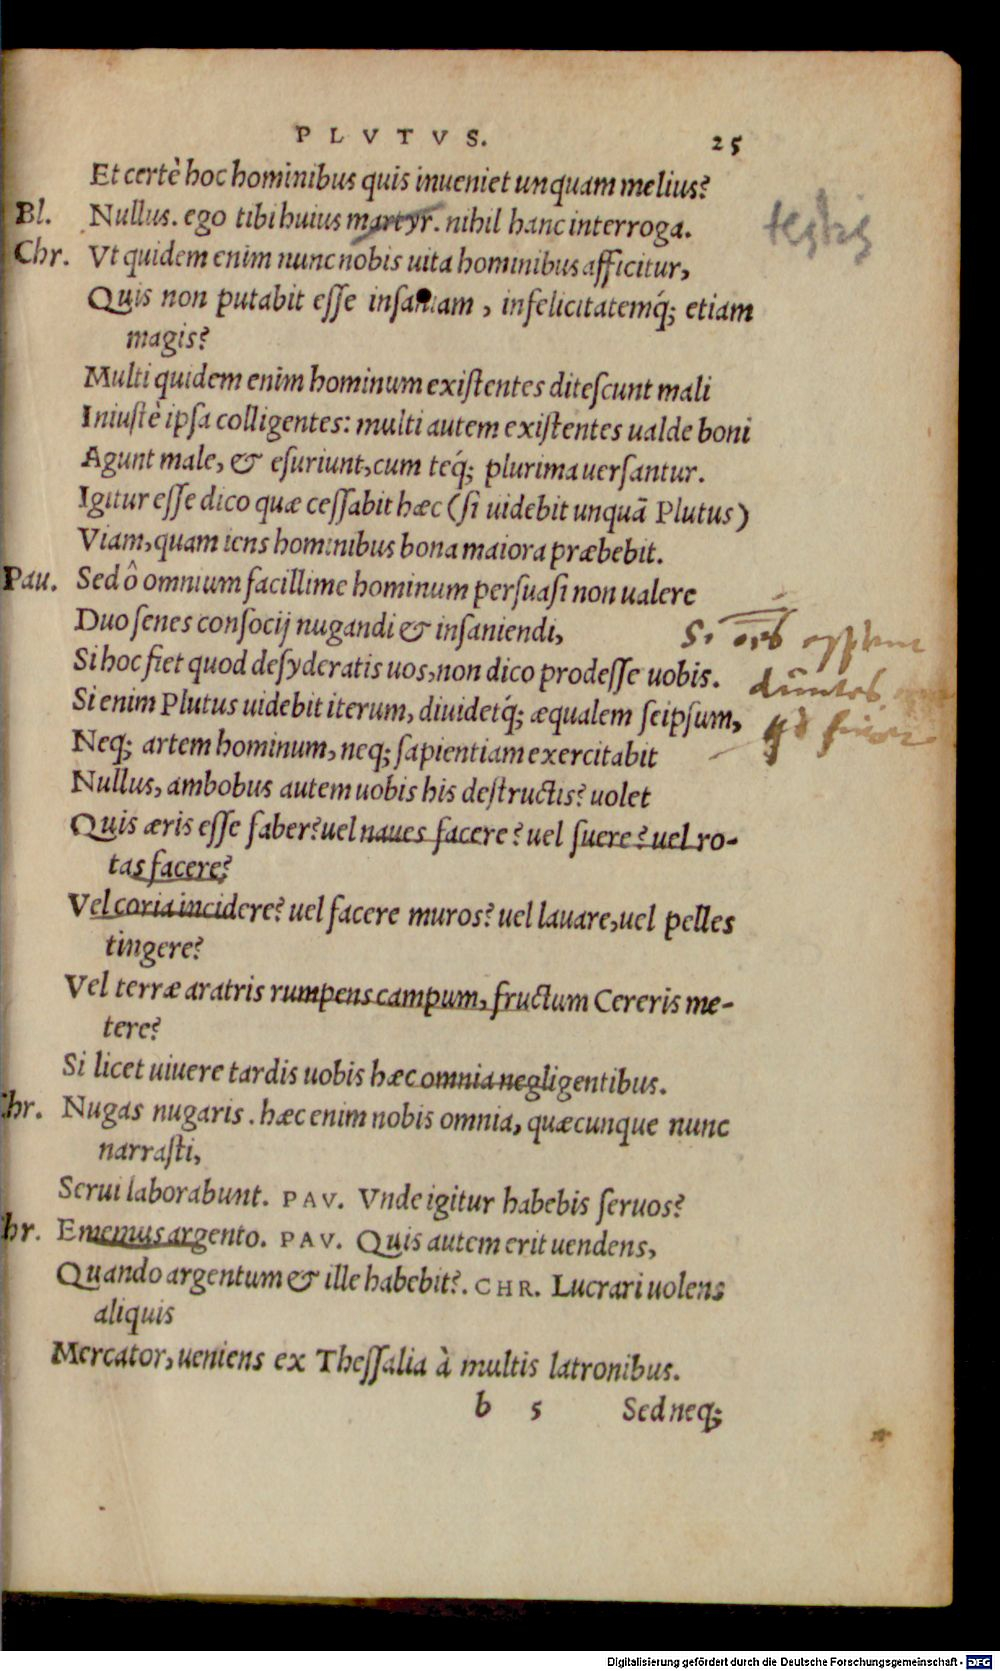 PLVTVS. 25
Et certè hoc hominibus quis inueniet unquam melius?
Bl. Nullus. ego tibi huius martyr. nihil hanc interroga. testis
Chr. Vt quidem enim nunc nobis uita hominibus afficitur,
Quis non putabit esse insaniam, infelicitatemq́; etiam
magis?
Multi quidem enim hominum existentes ditescunt mali
Iniustè ipsa colligentes: multi autem existentes ualde boni
Agunt male, & esuriunt, cum teq́; plurima uersantur.
Igitur esse dico quæ cessabit hæc (si uidebit unquã Plutus)
Viam, quam iens hominibus bona maiora præbebit.
Pau. Sed ô omnium facillime hominum persuasi non ualere
Duo senes consocij nugandi & insaniendi,
Si
Si hoc fiet quod desyderatis uos, non dico prodesse uobis.
Si enim Plutus uidebit iterum, diuidetq́; æqualem seipsum,
Neq; artem hominum, neq; sapientiam exercitabit
Nullus, ambobus autem uobis his destructis? uolet
Quis æris esse faber? uel naues facere? uel suere? uel ro-
tas facere?
Vel coria incidere? uel facere muros? uel lauare, uel pelles
tingere?
Vel terræ aratris rumpens campum, fructum Cereris me-
tere?
Si licet uiuere tardis uobis hæc omnia negligentibus.
Chr. Nugas nugaris. hæc enim nobis omnia, quæcunque nunc
narrasti,
Serui laborabunt. PAV. Vnde igitur habebis seruos?
hr. Ememus argento. PAV. Quis autem erit uendens,
Quando argentum & ille habebit?. CHR. Lucrari uolens
aliquis
Mercator, ueniens ex Thessalia à multis latronibus.
b 5 Sed neq;
Digitalisierung gefördert durch die Deutsche Forschungsgemeinschaft - DFG